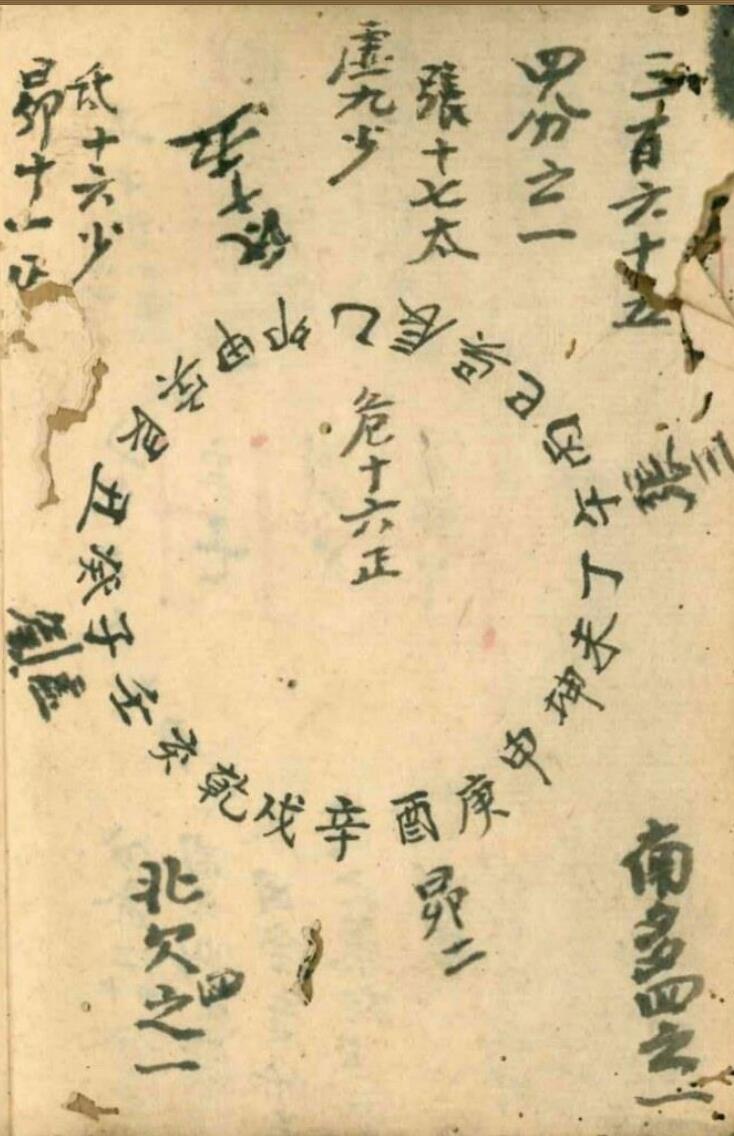 三百六十五
四分之一
張十七太
虛九少
氐十五
氐十六少
昴十一正
危十六正
乙辰巽巳丙午丁未坤申庚酉辛戌乾亥壬子癸丑艮寅甲卯
張三
昴二
虛
南多四之一
北欠四之一